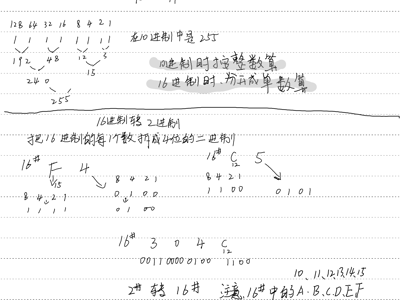 128 64 32 16 8 4 2 1
1 1 1 1 1 1 1 1 在10进制中是255
192 48 12 3
240 15
255
10进制时按整数算
16进制时,分开成单数算
16进制转2进制
把16进制的每1个数拆成4位的二进制
16# F 4
15
8 4 2 1
1 1 1 1
8 4 2 1
0 1 0 0
16# C 5
12
8 4 2 1
1 1 0 0
0 1 0 1
16# 3 0 4 C
12
0011 0000 0100 1100
10、11、12、13、14、15
2# 转 16# 注意,16#中的A.B.C.D.E.F